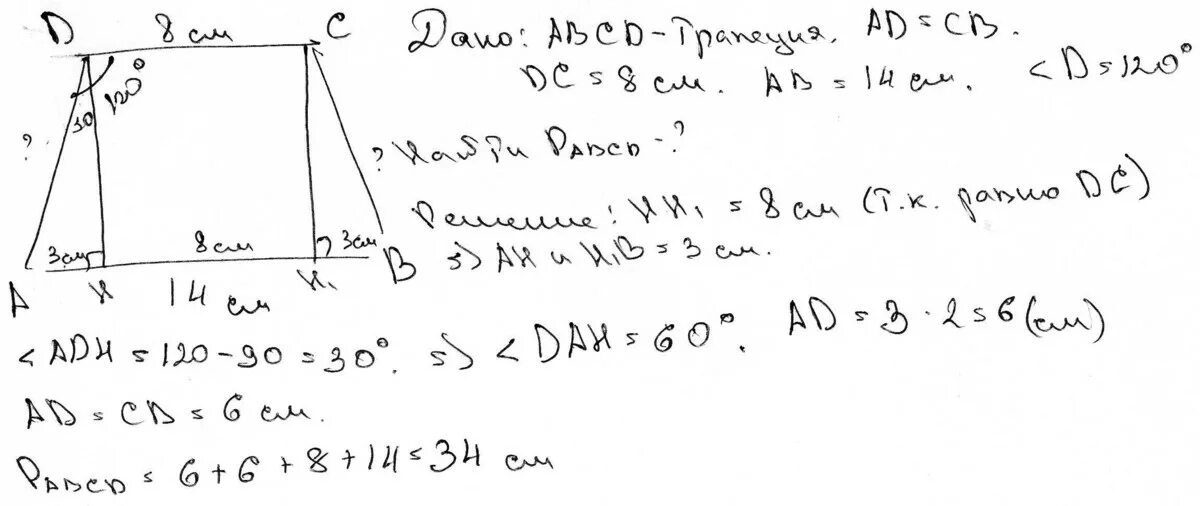 D 8 см C
120°
30
? ?
3см 8см 3см
A H 14 см H₁ B
Дано: ABCD - Трапеция. AD = CB.
DC = 8 см. AB = 14 см. <D = 120°
Найти PABCD - ?
Решение: HH₁ = 8 см (т.к. равно DC)
=> AH и H₁B = 3 см.
<ADH = 120 - 90 = 30°. => <DAH = 60°. AD = 3 · 2 = 6 (см)
AD = CB = 6 см.
PABCD = 6 + 6 + 8 + 14 = 34 см